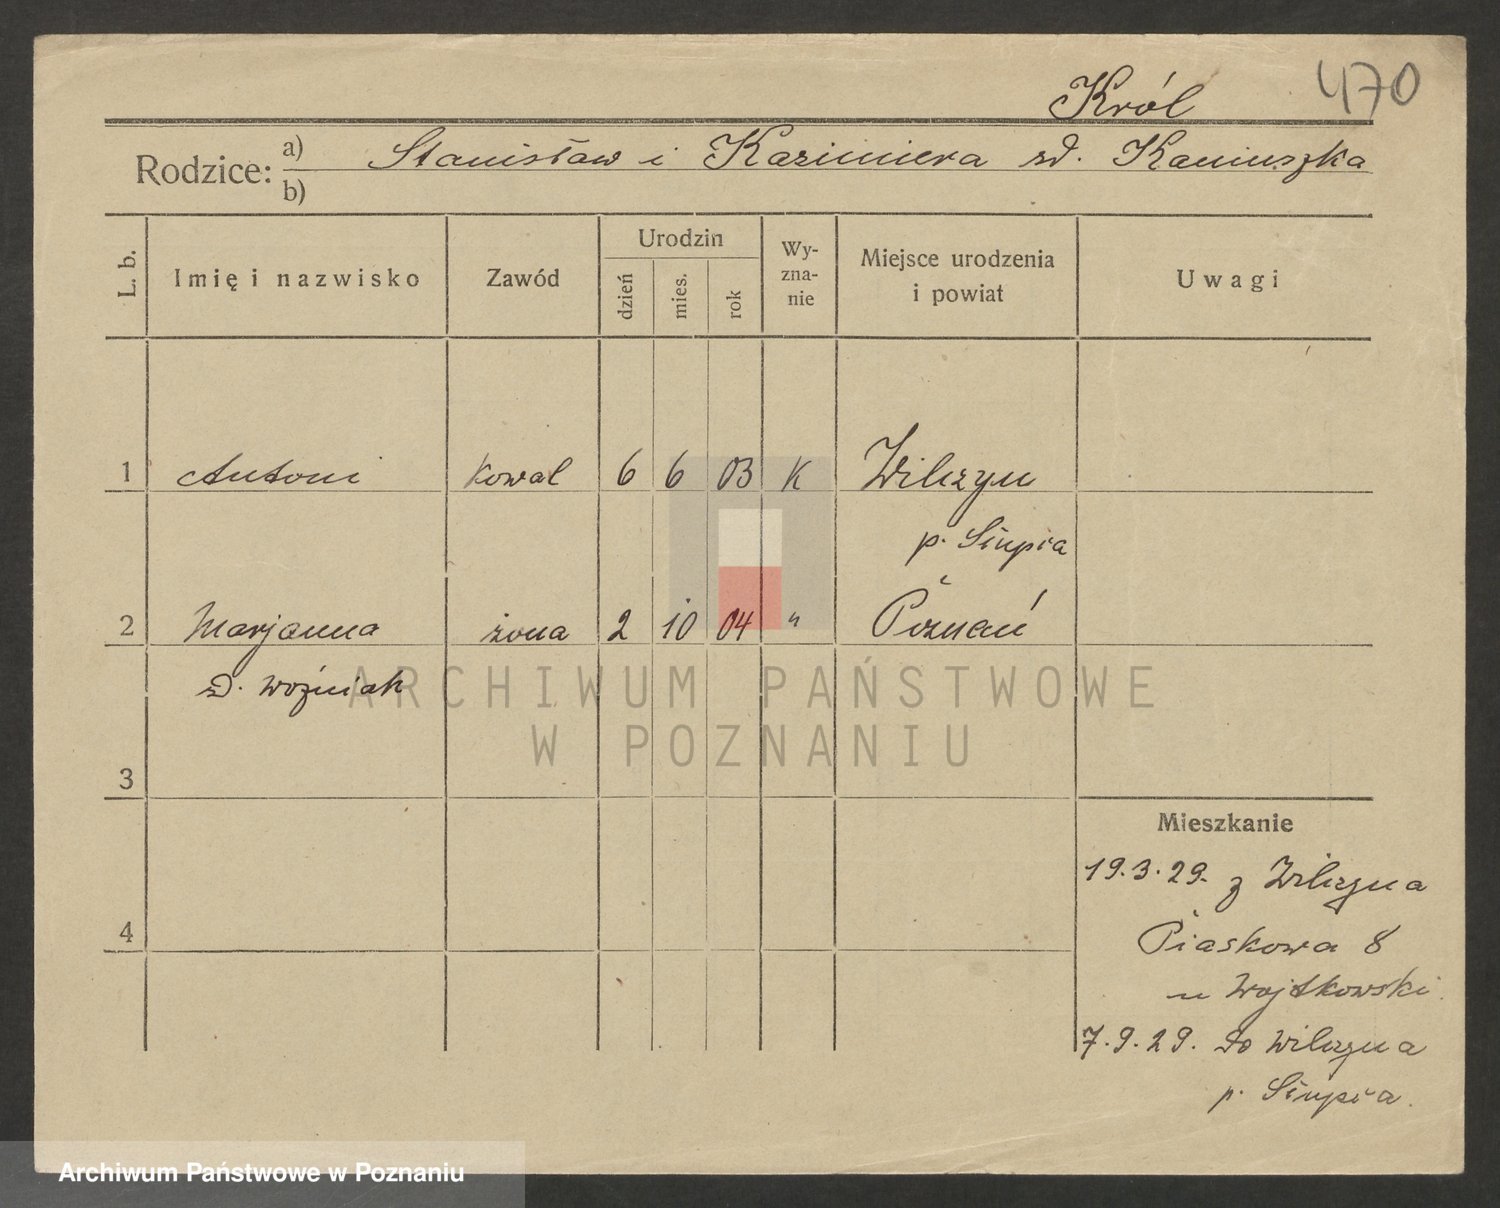 470
Król
Rodzice: a) Stanisław i Kazimiera zd. Kaniuszka
b)
L. b. Imię i nazwisko Zawód Urodzin dzień mies. rok Wy-zna-nie Miejsce urodzenia i powiat Uwagi
1 Antoni kowal 6 6 03 K Wilczyn
p. Słupca
2 Marjanna żona 2 10 04 " Poznań
zd. Woźniak
ARCHIWUM PAŃSTWOWE
W POZNANIU
3
Mieszkanie
19.3.29. z Wilczyna
4
Piaskowa 8
u Wojtkowski
7.9.29. do Wilczyna
p. Słupca.
Archiwum Państwowe w Poznaniu